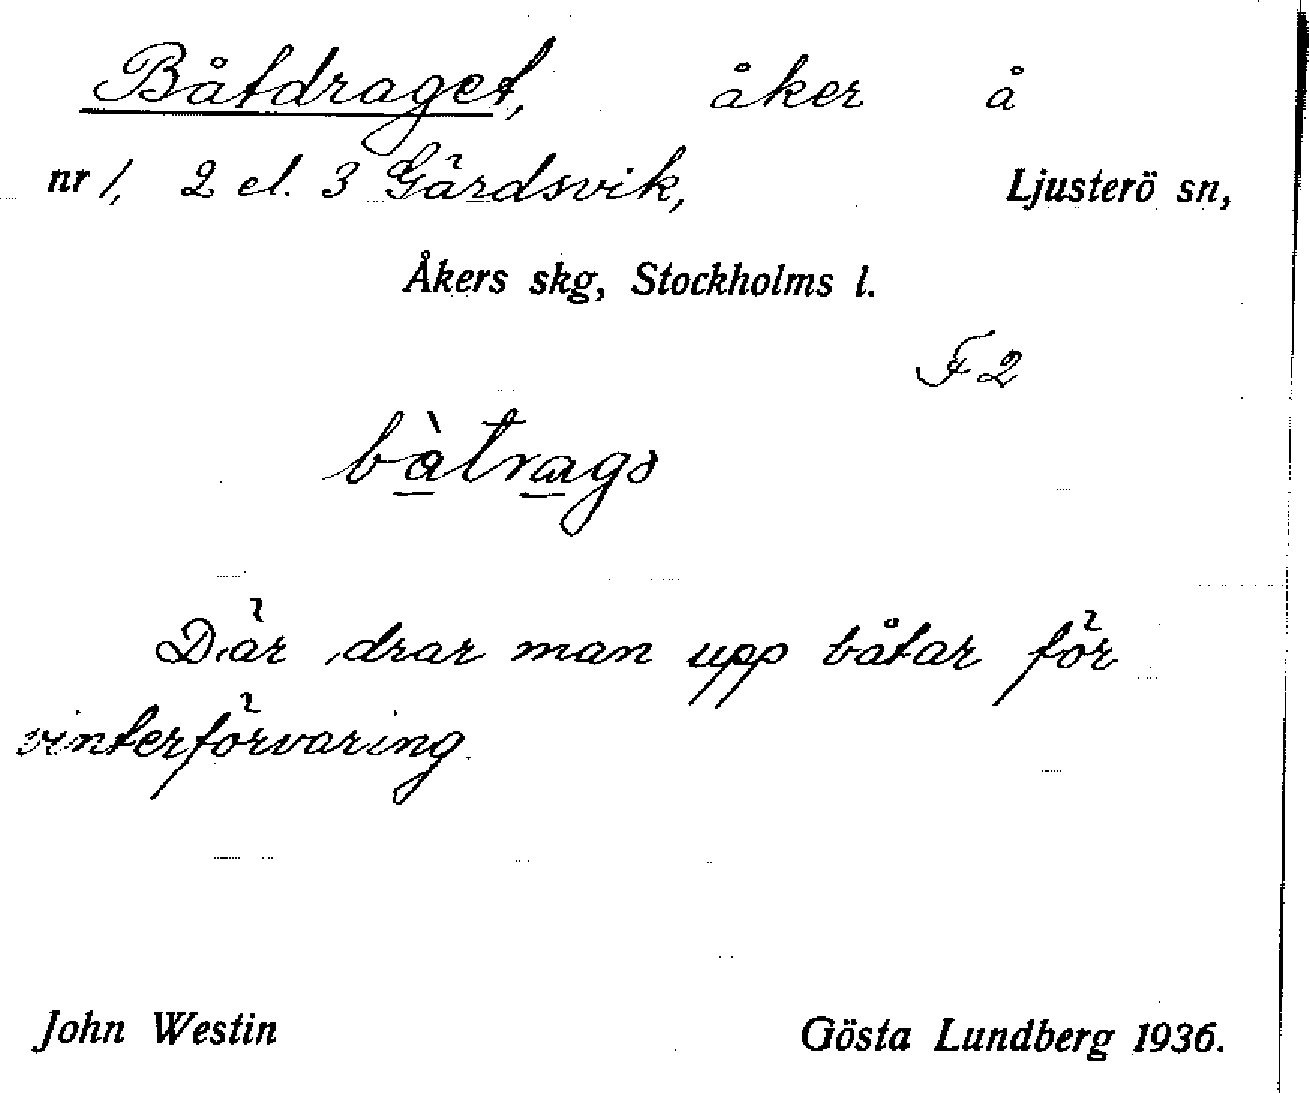 Båtdraget, åker å
nr 1, 2 el. 3 Gärdsvik, Ljusterö sn,
Åkers skg, Stockholms l.
F2
bàtrags
Där drar man upp båtar för
vinterförvaring.
John Westin Gösta Lundberg 1936.